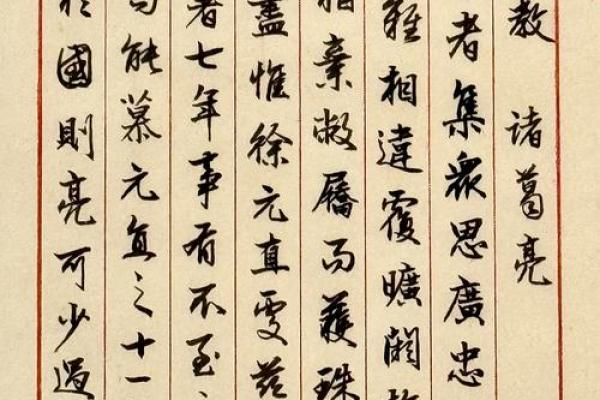 教 诸葛亮
者集眾思廣忠
難相違覆曠闕
棄敝屩而獲珠
盡惟徐元直處茲
署七年事有不至
能慕元直之十一
於國則亮可少過